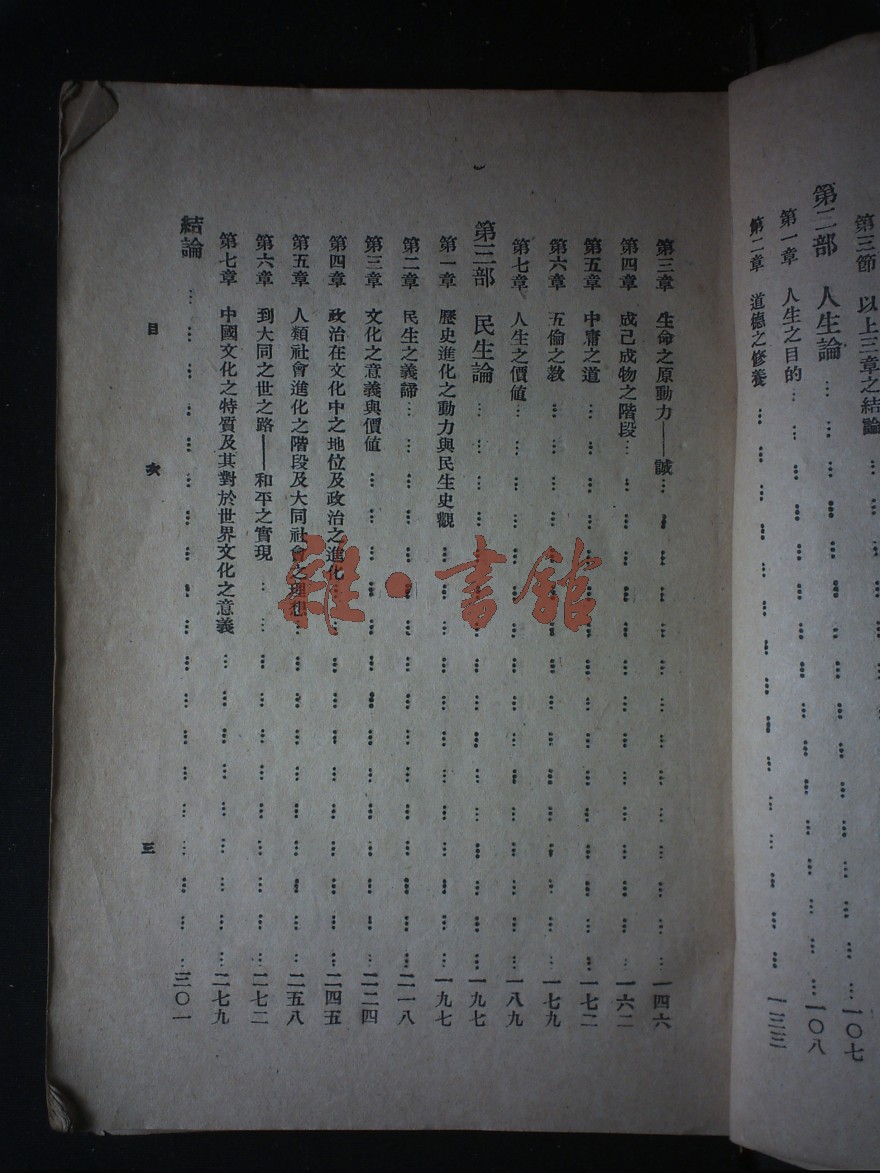 第三節　以上三章之結論
第二部　人生論………一〇七
第一章　人生之目的………一〇八
第二章　道德之修養………一三三
第三章　生命之原動力——誠………一四六
第四章　成己成物之階段………一六二
第五章　中庸之道………一七二
第六章　五倫之教………一七九
第七章　人生之價値………一八九
第三部　民生論………一九七
第一章　歷史進化之動力與民生史觀………一九七
第二章　民生之義諦………二一八
第三章　文化之意義與價値………二二四
第四章　政治在文化中之地位及政治之進化………二四五
第五章　人類社會進化之階段及大同社會之理想………二五八
第六章　到大同之世之路——和平之實現………二七二
第七章　中國文化之特質及其對於世界文化之意義………二七九
結論………三〇一
目　次　三
雜·書館